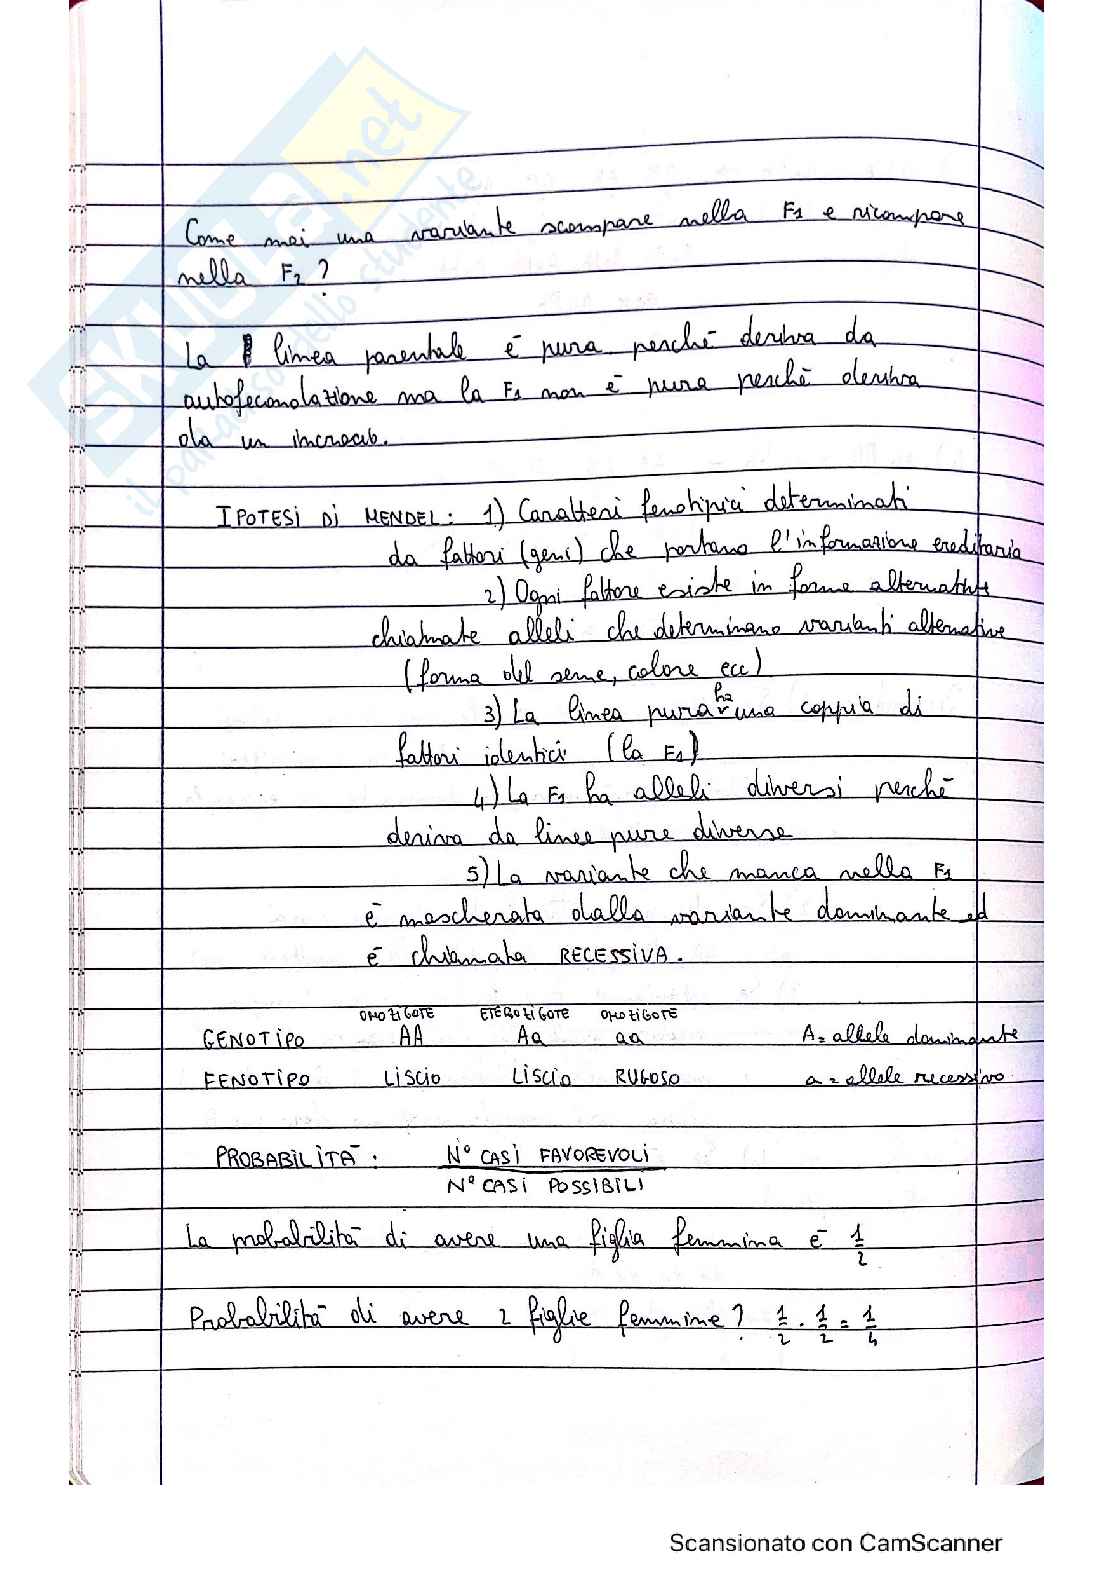 Come mai una variante scompare nella F1 e ricompare
nella F2 ?
La linea parentale è pura perchè deriva da
autofecondazione ma la F1 non è pura perchè deriva
da un incrocio.
IPOTESI DI MENDEL: 1) Caratteri fenotipici determinati
da fattori (geni) che portano l'informazione ereditaria
2) Ogni fattore esiste in forme alternative
chiamate alleli che determinano varianti alternative
(forma del seme, colore ecc)
3) La linea pura ha una coppia di
fattori identici (la F1)
4) La F1 ha alleli diversi perchè
deriva da linee pure diverse
5) La variante che manca nella F1
è mascherata dalla variante dominante ed
è chiamata RECESSIVA.
OMOZIGOTE ETEROZIGOTE OMOZIGOTE
GENOTIPO AA Aa aa A= allele dominante
FENOTIPO LISCIO LISCIO RUGOSO a = allele recessivo
PROBABILITÀ : N° CASI FAVOREVOLI
N° CASI POSSIBILI
La probabilità di avere una figlia femmina è 1/2
Probabilità di avere 2 figlie femmine? 1/2 . 1/2 = 1/4
SKUOLA.net
il paradiso dello studente
Scansionato con CamScanner